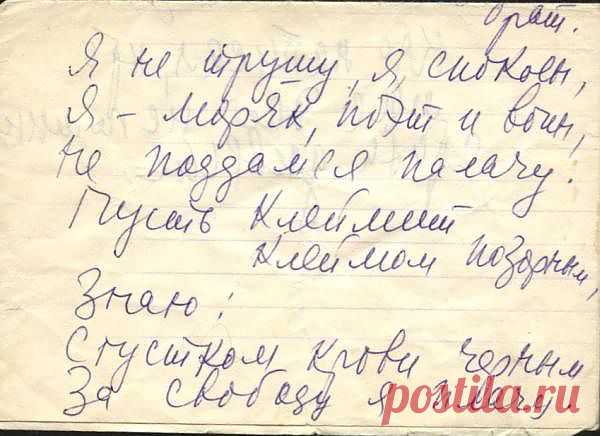 брат.
Я не трушу, я спокоен,
Я – моряк, поэт и воин,
Не поддамся палачу.
Пусть клеймит
клеймом позорным,
Знаю:
Сгустком крови черным
За свободу я плачу.
postila.ru